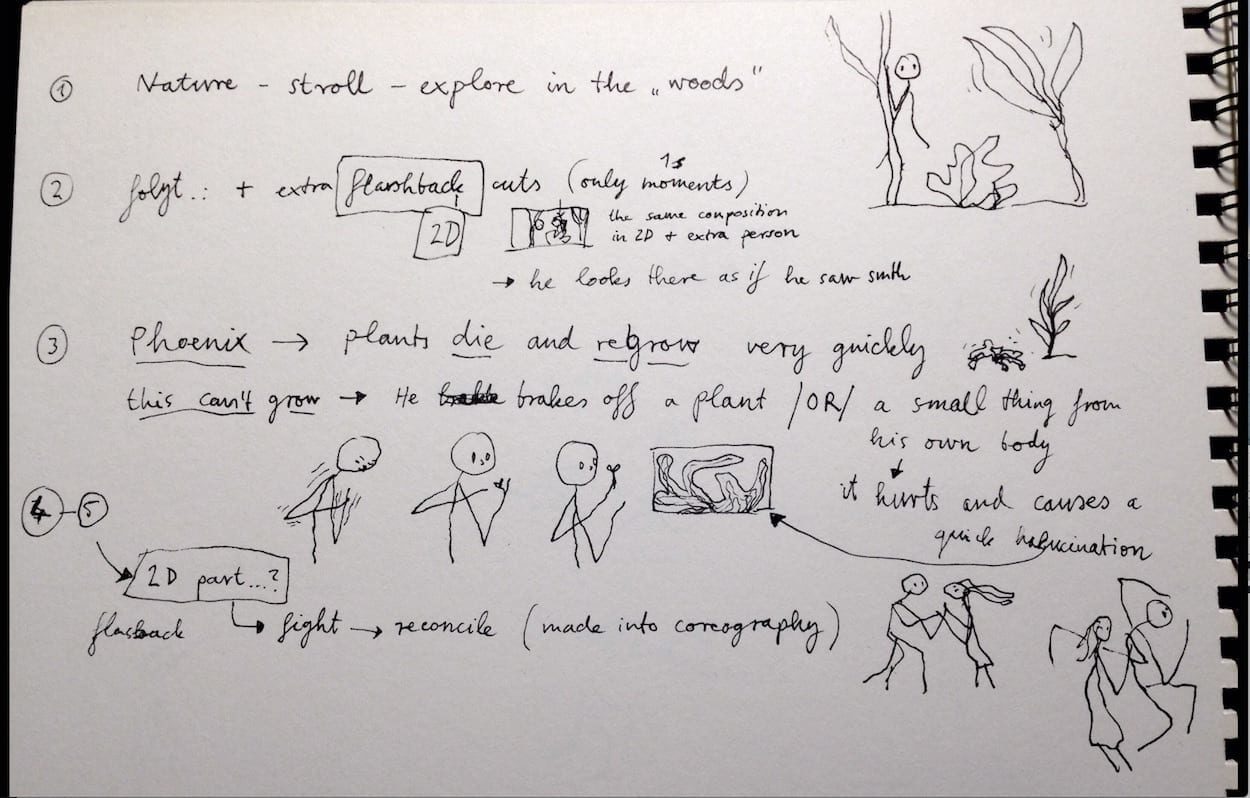 ① Nature - stroll - explore in the „woods"
② folyt.: + extra flashback cuts (only moments)
1s
2D
the same composition
in 2D + extra person
→ he looks there as if he saw smth
③ Phoenix → plants die and regrow very quickly
this can't grow → He brakes off a plant /OR/ a small thing from
his own body
it hurts and causes a
quick halucination
4-5
2D part...?
flasback → fight → reconcile (made into coreography)